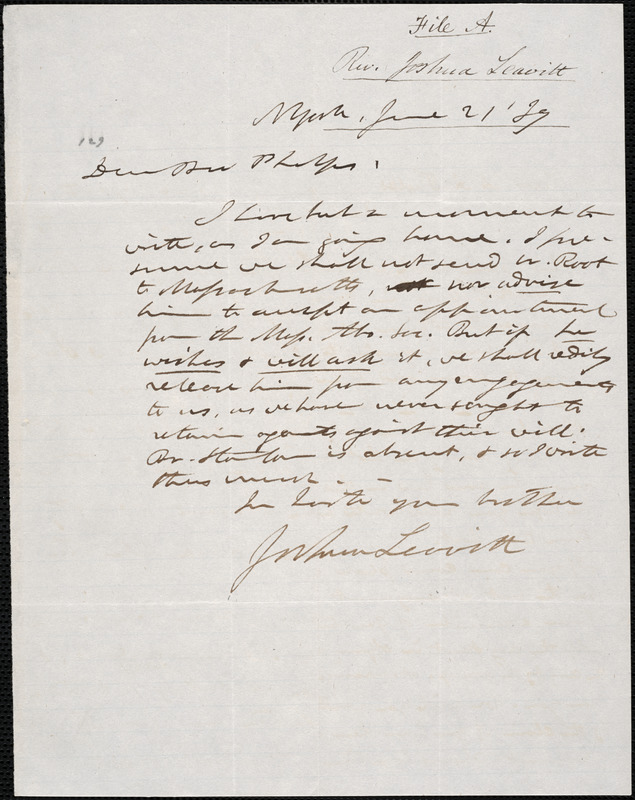 File A.
Rev. Joshua Leavitt
NYork, June 21 '39
129
Dear Bro Phelps,
I have but a moment to
write, as I am going home. I pre-
sume we shall not send Br. Root
to Massachusetts, nor advise
him to accept an appointment
from the Mass. Abo. Soc. But if he
wishes & will ask it, we shall redily
release him from any engagements
to us, as we have never sought to
retain agents against their will.
Br. Stanton is absent, & so I write
thus much. -
In haste your brother
Joshua Leavitt